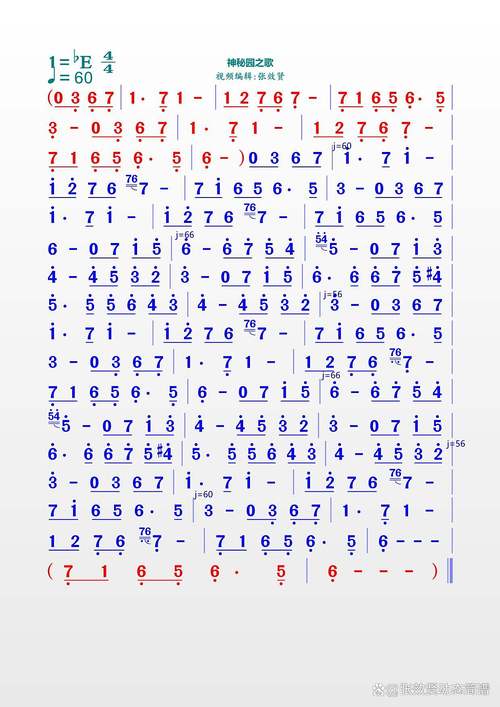 神秘园之歌
1=♭E 4/4
视频编辑:张效贤
♩=60
(0 3 6 7 | 1· 7 1 - | 1 2 7 6 7 - | 7 1 6 5 6· 5 |
3 - 0 3 6 7 | 1· 7 1 - | 1 2 7 6 7 - |
7 1 6 5 6· 5 | 6 - ) 0 3 6 7 | j=60 1· 7 1 - |
1 2 7 6 76 7 - | 7 1 6 5 6· 5 | 3 - 0 3 6 7 |
1· 7 1 - | 1 2 7 6 76 7 - | 7 1 6 5 6· 5 |
6 - 0 7 1 5 | j=66 6 - 6 7 5 4 | 54 5 - 0 7 1 3 |
4 - 4 5 3 2 | 3 - 0 7 1 5 | 6· 6 6 7 5 #4 |
5· 5 5 6 4 3 | 4 - 4 5 3 2 | j=56 3 - 0 3 6 7 |
1· 7 1 - | 1 2 7 6 76 7 - | 7 1 6 5 6· 5 |
3 - 0 3 6 7 | 1· 7 1 - | 1 2 7 6 76 7 - |
7 1 6 5 6· 5 | 6 - 0 7 1 5 | j=66 6 - 6 7 5 4 |
54 5 - 0 7 1 3 | 4 - 4 5 3 2 | 3 - 0 7 1 5 |
6· 6 6 7 5 #4 | 5· 5 5 6 4 3 | 4 - 4 5 3 2 | j=56
3 - 0 3 6 7 | 1· 7 1 - | 1 2 7 6 76 7 - |
7 1 6 5 6· 5 | j=60 3 - 0 3 6 7 | 1· 7 1 - |
1 2 7 6 76 7 - | 7 1 6 5 6· 5 | 6 - - - |
( 7 1 6 5 6· 5 | 6 - - - ) ‖
张效贤动态简谱